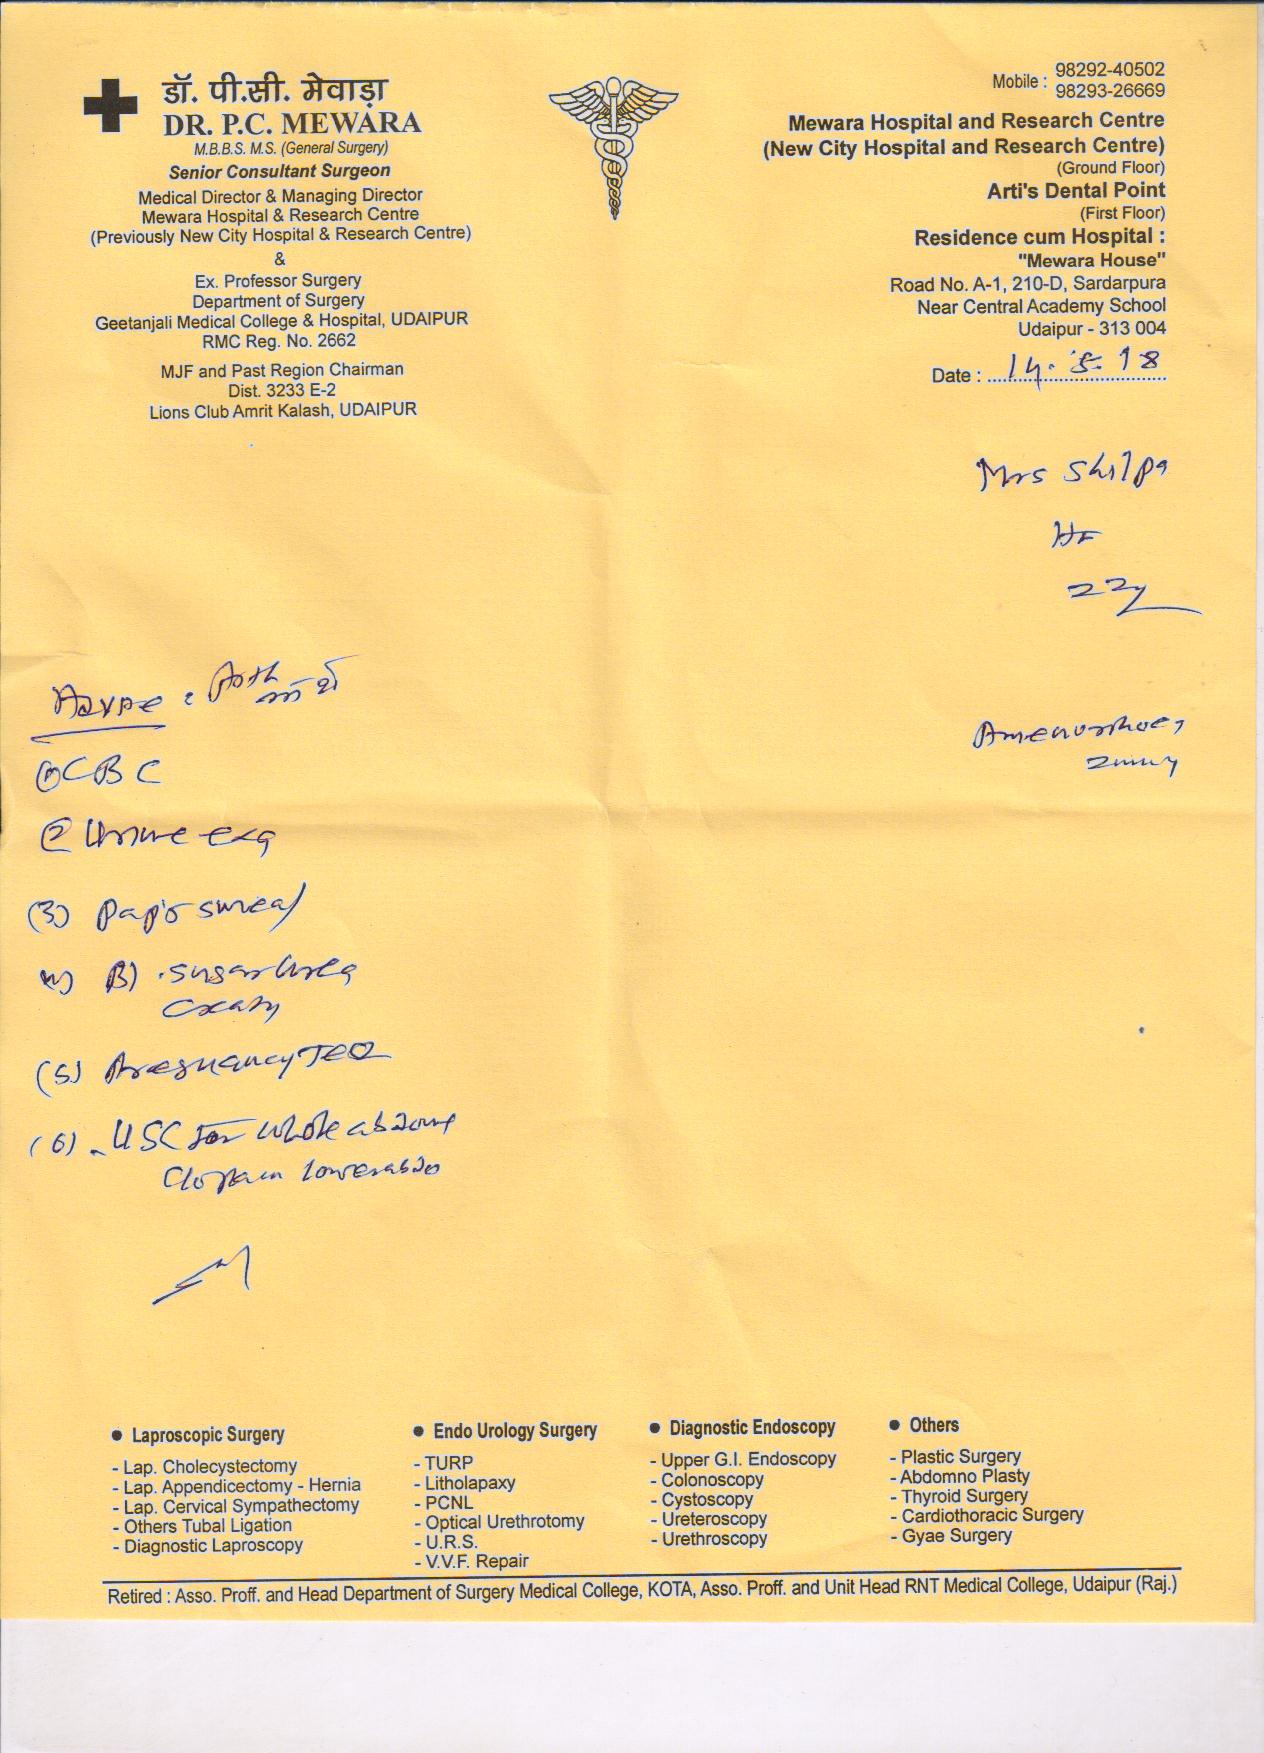 डॉ. पी.सी. मेवाड़ा
DR. P.C. MEWARA
M.B.B.S. M.S. (General Surgery)
Senior Consultant Surgeon
Medical Director & Managing Director
Mewara Hospital & Research Centre
(Previously New City Hospital & Research Centre)
&
Ex. Professor Surgery
Department of Surgery
Geetanjali Medical College & Hospital, UDAIPUR
RMC Reg. No. 2662
MJF and Past Region Chairman
Dist. 3233 E-2
Lions Club Amrit Kalash, UDAIPUR
Mobile : 98292-40502
98293-26669
Mewara Hospital and Research Centre
(New City Hospital and Research Centre)
(Ground Floor)
Arti's Dental Point
(First Floor)
Residence cum Hospital :
"Mewara House"
Road No. A-1, 210-D, Sardarpura
Near Central Academy School
Udaipur - 313 004
Date : 14. 5. 18
Mrs Shilpa
22y
Amenorrhoea
Advice :
(1) CBC
(2) Urine exa
(3) Pap's smear
(4) Bl. sugar Urea
(5) Pregnancy Test
(6) USG for whole abdome
C/o pain lower abdo
● Laproscopic Surgery
- Lap. Cholecystectomy
- Lap. Appendicectomy - Hernia
- Lap. Cervical Sympathectomy
- Others Tubal Ligation
- Diagnostic Laproscopy
● Endo Urology Surgery
- TURP
- Litholapaxy
- PCNL
- Optical Urethrotomy
- U.R.S.
- V.V.F. Repair
● Diagnostic Endoscopy
- Upper G.I. Endoscopy
- Colonoscopy
- Cystoscopy
- Ureteroscopy
- Urethroscopy
● Others
- Plastic Surgery
- Abdomno Plasty
- Thyroid Surgery
- Cardiothoracic Surgery
- Gyae Surgery
Retired : Asso. Proff. and Head Department of Surgery Medical College, KOTA, Asso. Proff. and Unit Head RNT Medical College, Udaipur (Raj.)